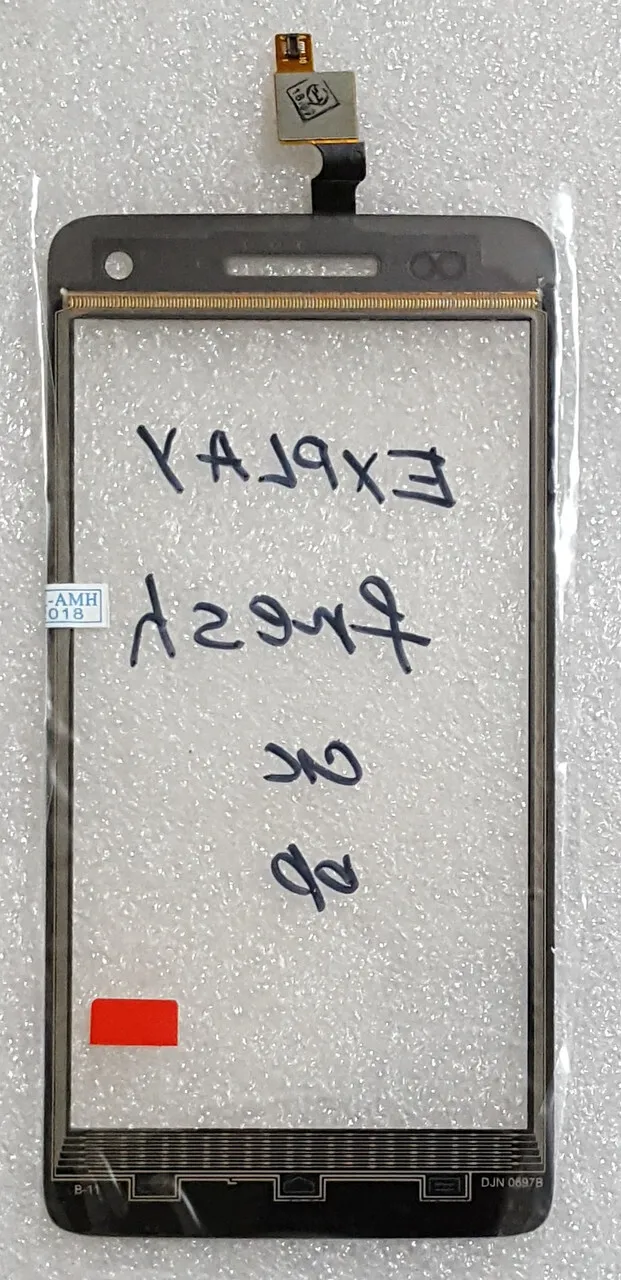 EXPLAY
fresh
-AMH
018
B-11
DJN 0697B